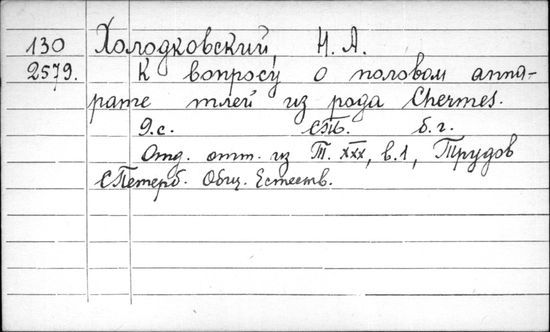 130 Холодковский Н. А.
2579. К вопросу о половом аппа-
рате тлей из рода Chermes.
9.с. СПБ. б. г.
Отд. отт. из Т. XXX, в.1, Трудов
СПетерб. Общ. Естеств.